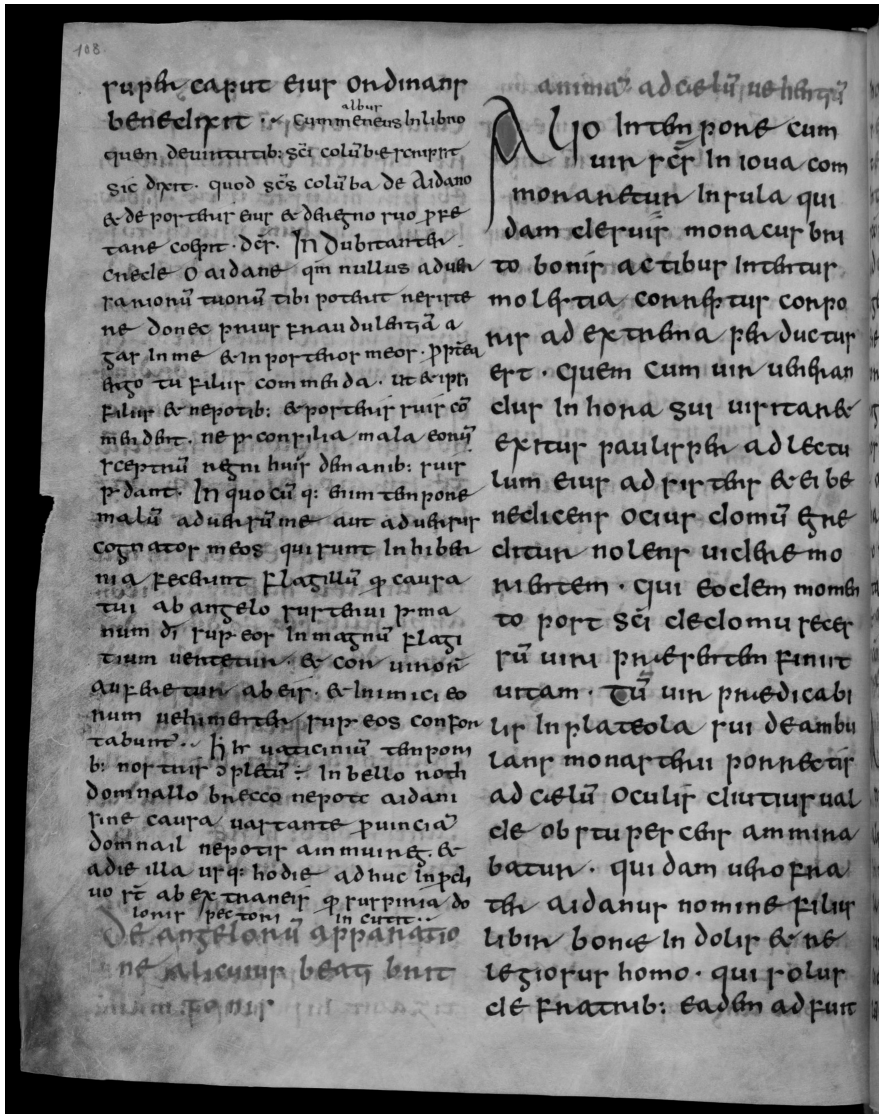 108
super caput eius ordinans
benedixit ·~ cummeneus albus in libro
quen de uirtutib: sc̄i columbæ scripsit
sic dixit · quod sc̄s colūba de aidano
& de posteris eius & de regno suo profe
tare coepit · dc̄s · In dubitanter
crede o aidane qm̄ nullus aduer
sariorū tuorū tibi poterit resiste
re donec prius fraudulentiā a
gas in me & in posteros meos · propterea
ergo tu filiis commenda · ut & ipsi
filiis & nepotib: & posteris suis cō
mendent · ne ꝑ consilia mala eorū
sceptrū regni huius de manib: suis
ꝑdant · In quocūq: enim tempore
malū aduersū me aut aduersus
cognatos meos qui sunt in hiber
nia fecerint flagillū ꝙ causa
tui ab angelo sustenui ꝑ ma
num dī sup̄ eos in magnū flagi
tium uertetur · & cor uirorū
auferetur ab eis · & inimici eo
rum uehimenter sup̄ eos confor
tabunt̄ ·· hoc h̄ uaticiniū tempori
b: nostris ɔpletū ÷ in bello roth
domnallo brecco nepote aidani
sine causa uastante ꝓuinciā
domnail nepotis ainmuireg · &
a die illa usq: hodie adhuc in ꝓcli
uo sr̄t ab extraneis ꝙ suspiria do
loris pectori incutit ··
De angelorū apparatio
ne alicuius beati brit
animā ad cælū uehentiū
Alio in tempore cum
uir sc̄s in ioua com
moraretur insula qui
dam de suis monacus bri
to bonis actibus intentus
molestia correptus corpo
ris ad extrema perductus
est · quem cum uir ueneran
dus in hora sui uisitaret
exitus paulisper ad lectu
lum eius adsistens & ei be
nedicens ocius domū egre
ditur nolens uidere mo
rientem · qui eodem momen
to post sc̄i de domu seces
sū uiri præsentem finiit
uitam · Tū uir prædicabi
lis in plateola sui deambu
lans monasterii porrectis
ad cælū oculis diutius ual
de obstupescens ammira
batur · quidam uero fra
ter aidanus nomine filius
libir bonæ indolis & re
legiosus homo · qui solus
de fratrib: eadem adfuit